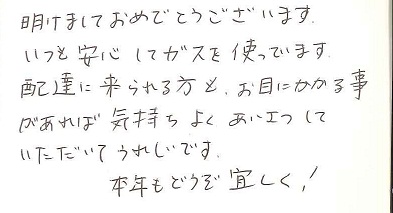 明けましておめでとうございます.
いつも安心してガスを使っています.
配達に来られる方も、お目にかかる事
があれば気持ちよくあいさつして
いただいてうれしいです.
本年もどうぞ宜しく!